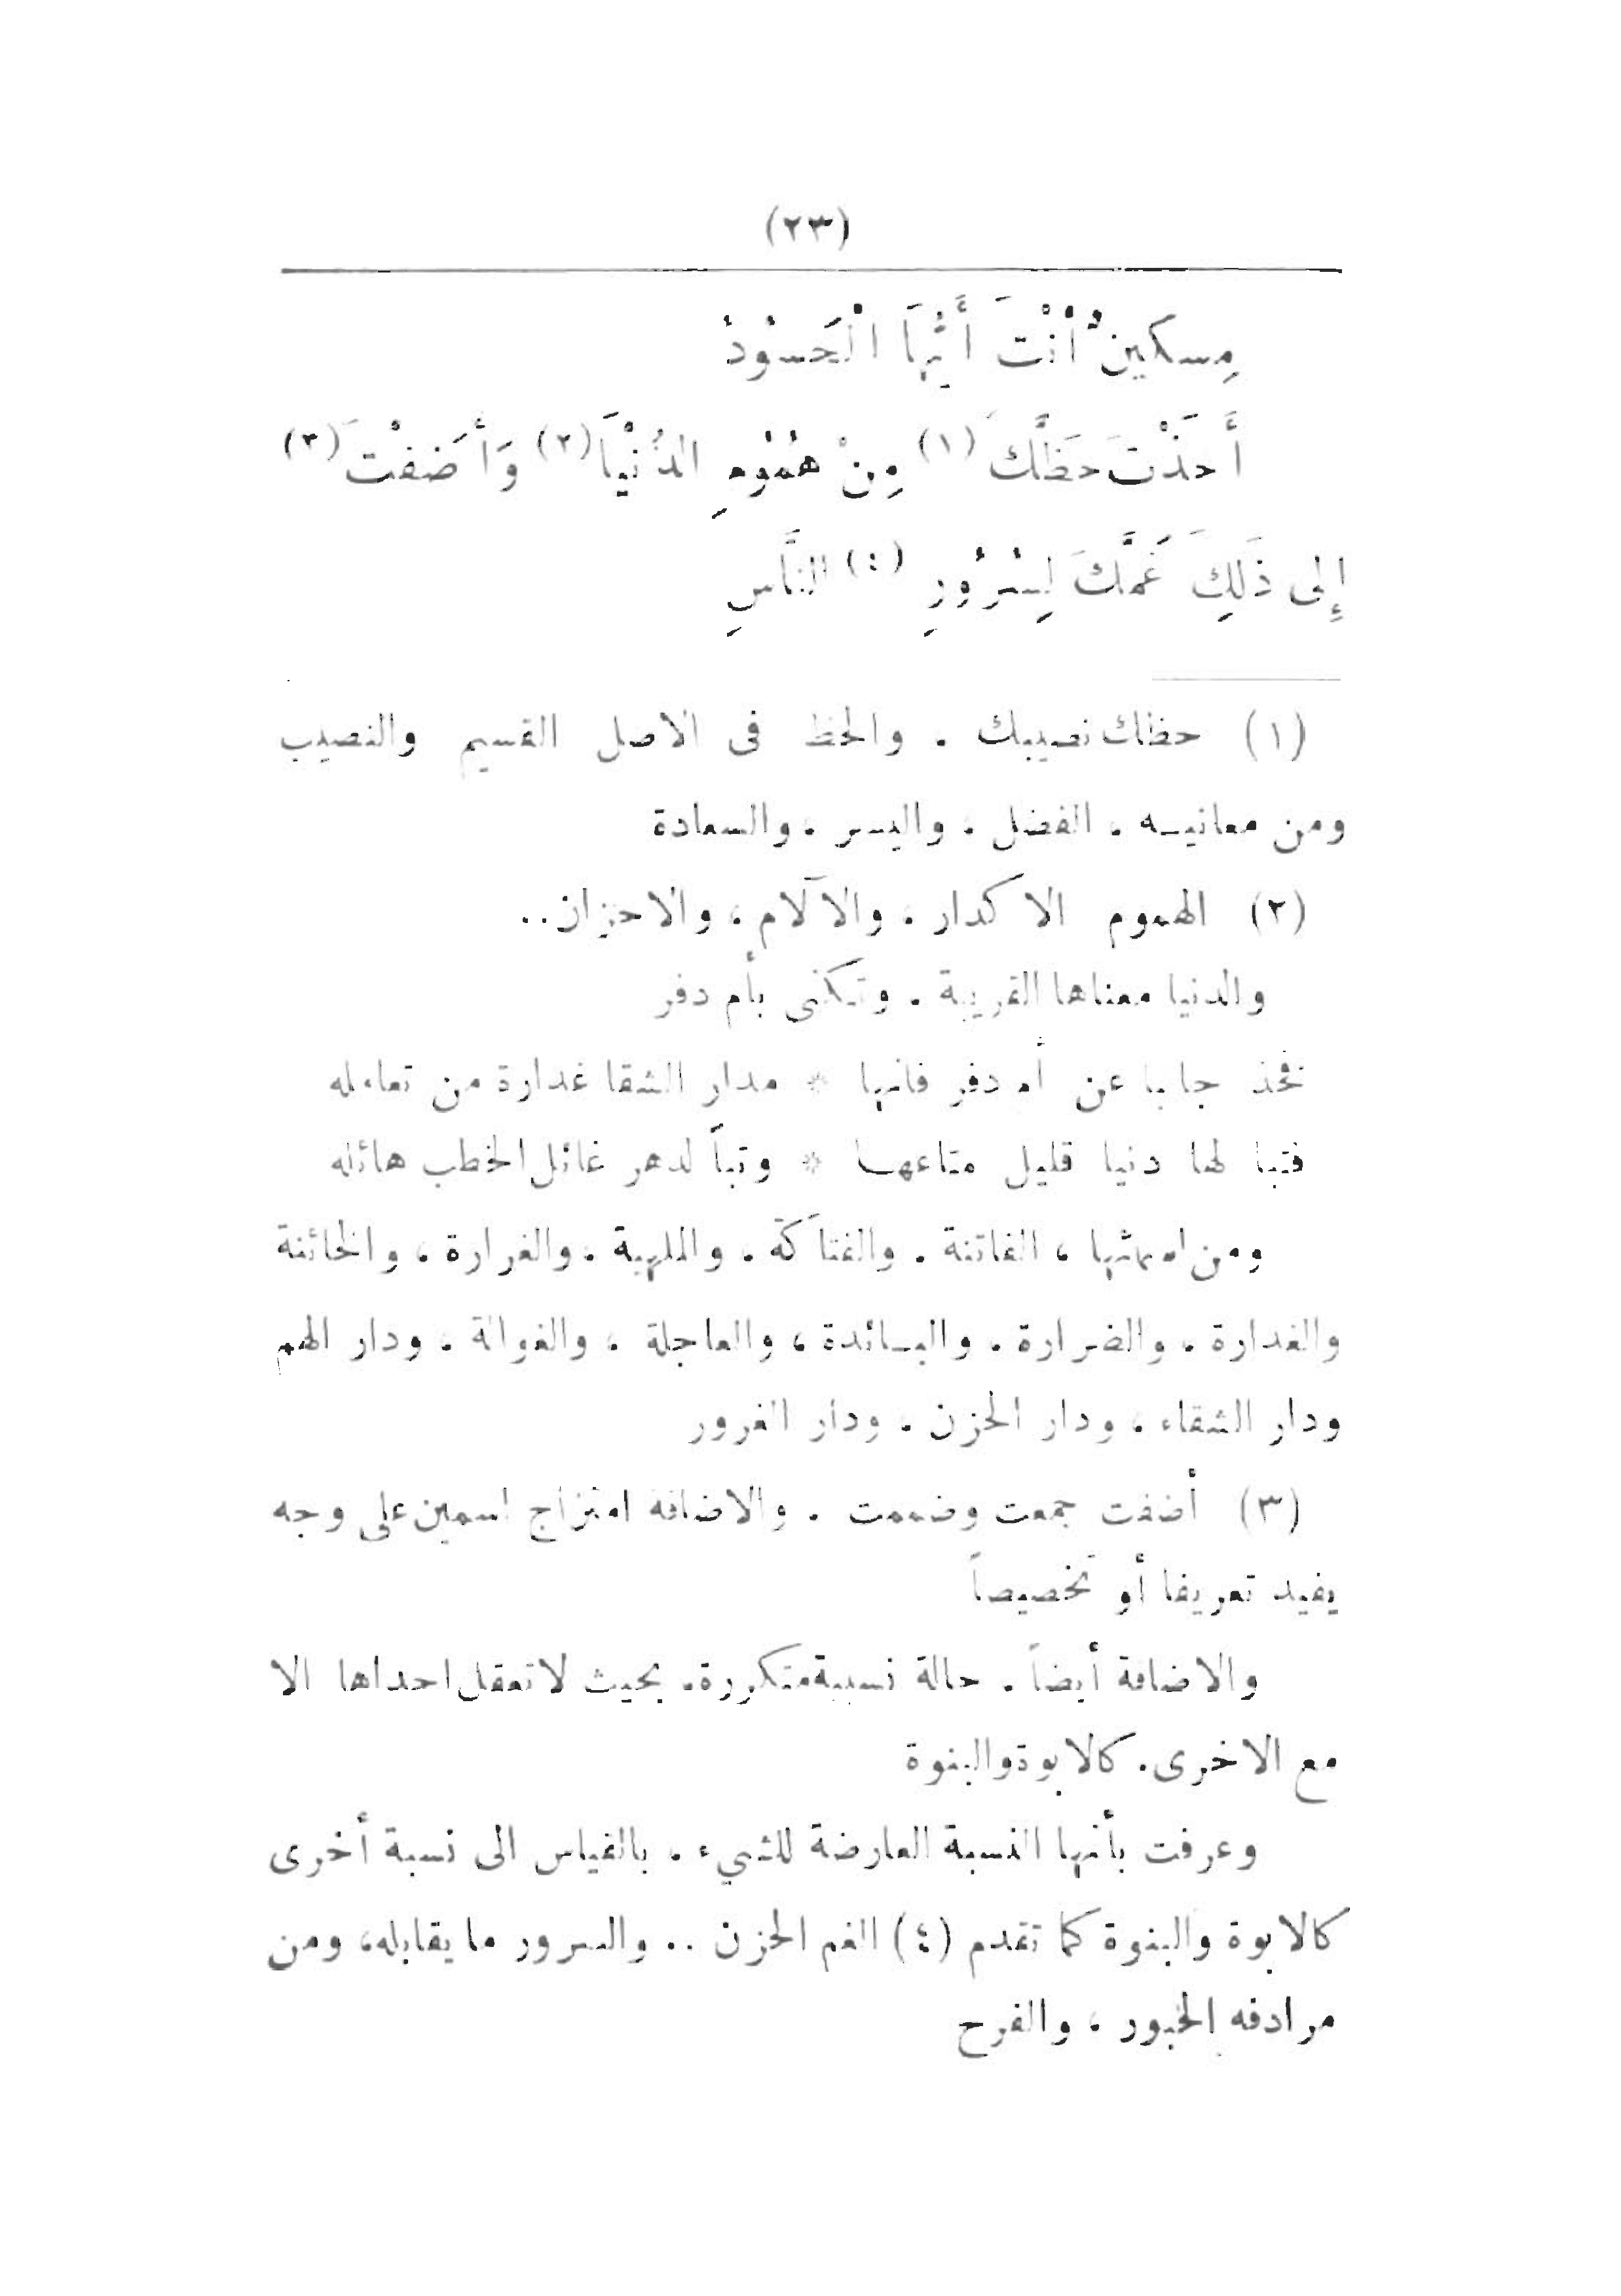 (٢٣)
مِسكينٌ أنْتَ أَيُّهَا الْحَسُوْدُ
أَخَذْتَ حَظَّكَ (١) مِنْ هُمُوْمِ الدُّنْيَا (٢) وَأَضفْتَ (٣)
إِلى ذَلِكَ غَمَّكَ لِسُرُورِ (٤) النَّاسِ
(١) حظك نصيبك . والحظ فى الاصل القسيم والنصيب
ومن معانيه ، الفضل ، واليسر ، والسعادة
(٢) الهموم الاكدار ، والآلام ، والاحزان ..
والدنيا معناها القريبة . وتكنى بأم دفر
فخذ جانبا عن أم دفر فانها * مدار الشقا غدارة من تعامله
فتبا لها دنيا قليل متاعها * وتباً لدهر غائل الخطب هائله
ومن اسمائها ، الفاتنة . والفتاكة . والملهية . والغرارة ، والخائنة
والغدارة . والضرارة . والبائدة ، والعاجلة ، والغوالة . ودار الهم
ودار الشقاء ، ودار الحزن . ودار الغرور
(٣) أضفت جمعت وضممت . والاضافة امتزاج اسمين على وجه
يفيد تعريفا أو تخصيصاً
والاضافة أيضاً . حالة نسبية متكررة . بحيث لا تعقل احداها الا
مع الاخرى . كالابوة والبنوة
وعرفت بأنها النسبة العارضة للشيء . بالقياس الى نسبة أخرى
كالابوة والبنوة كما تقدم (٤) الغم الحزن .. والسرور ما يقابله ، ومن
مرادفه الحبور ، والفرح